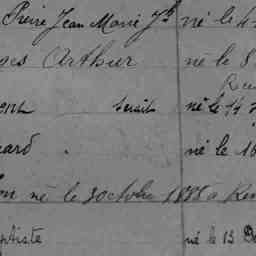 Pierre Jean Marie Jh né le 4
ges Arthur né le 8
Ren
né le 14
card né le 16
né le 3 octobre 1888 à Ren
aptiste né le 13 De